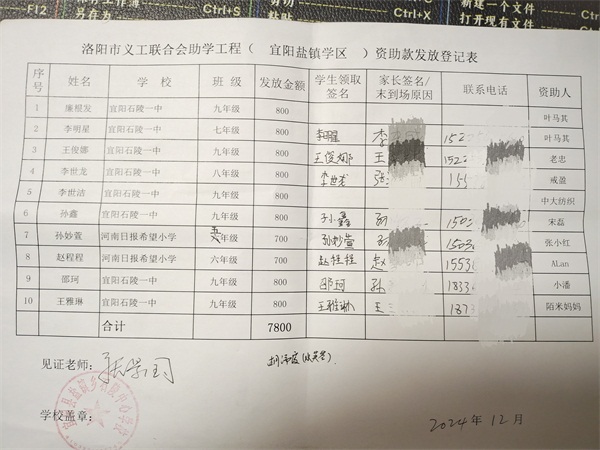 FI2 另存为 Ctrl+S 剪切 Ctrl+X 新建一个文件
打开现有文件
洛阳市义工联合会助学工程（ 宜阳盐镇学区 ）资助款发放登记表
序号 姓名 学 校 班 级 发放金额 学生领取签名 家长签名/未到场原因 联系电话 资助人
1 廉根发 宜阳石陵一中 九年级 800 叶马其
2 李明星 宜阳石陵一中 七年级 800 李明星 李 152 叶马其
3 王俊娜 宜阳石陵一中 九年级 800 王俊娜 王 152 老忠
4 李世龙 宜阳石陵一中 八年级 800 李世龙 张 155 戒盈
5 李世洁 宜阳石陵一中 九年级 800 中大纺织
6 孙鑫 宜阳石陵一中 九年级 800 孙鑫 孙 150 宋磊
7 孙妙萱 河南日报希望小学 六年级 700 孙妙萱 孙 1503 张小红
8 赵程程 河南日报希望小学 六年级 700 赵程程 赵 1553 ALan
9 邵珂 宜阳石陵一中 九年级 800 邵珂 孙 1833 小潘
10 王雅琳 宜阳石陵一中 九年级 800 王雅琳 王 1873 陌米妈妈
合计 7800
见证老师：
学校盖章：
2024年12月